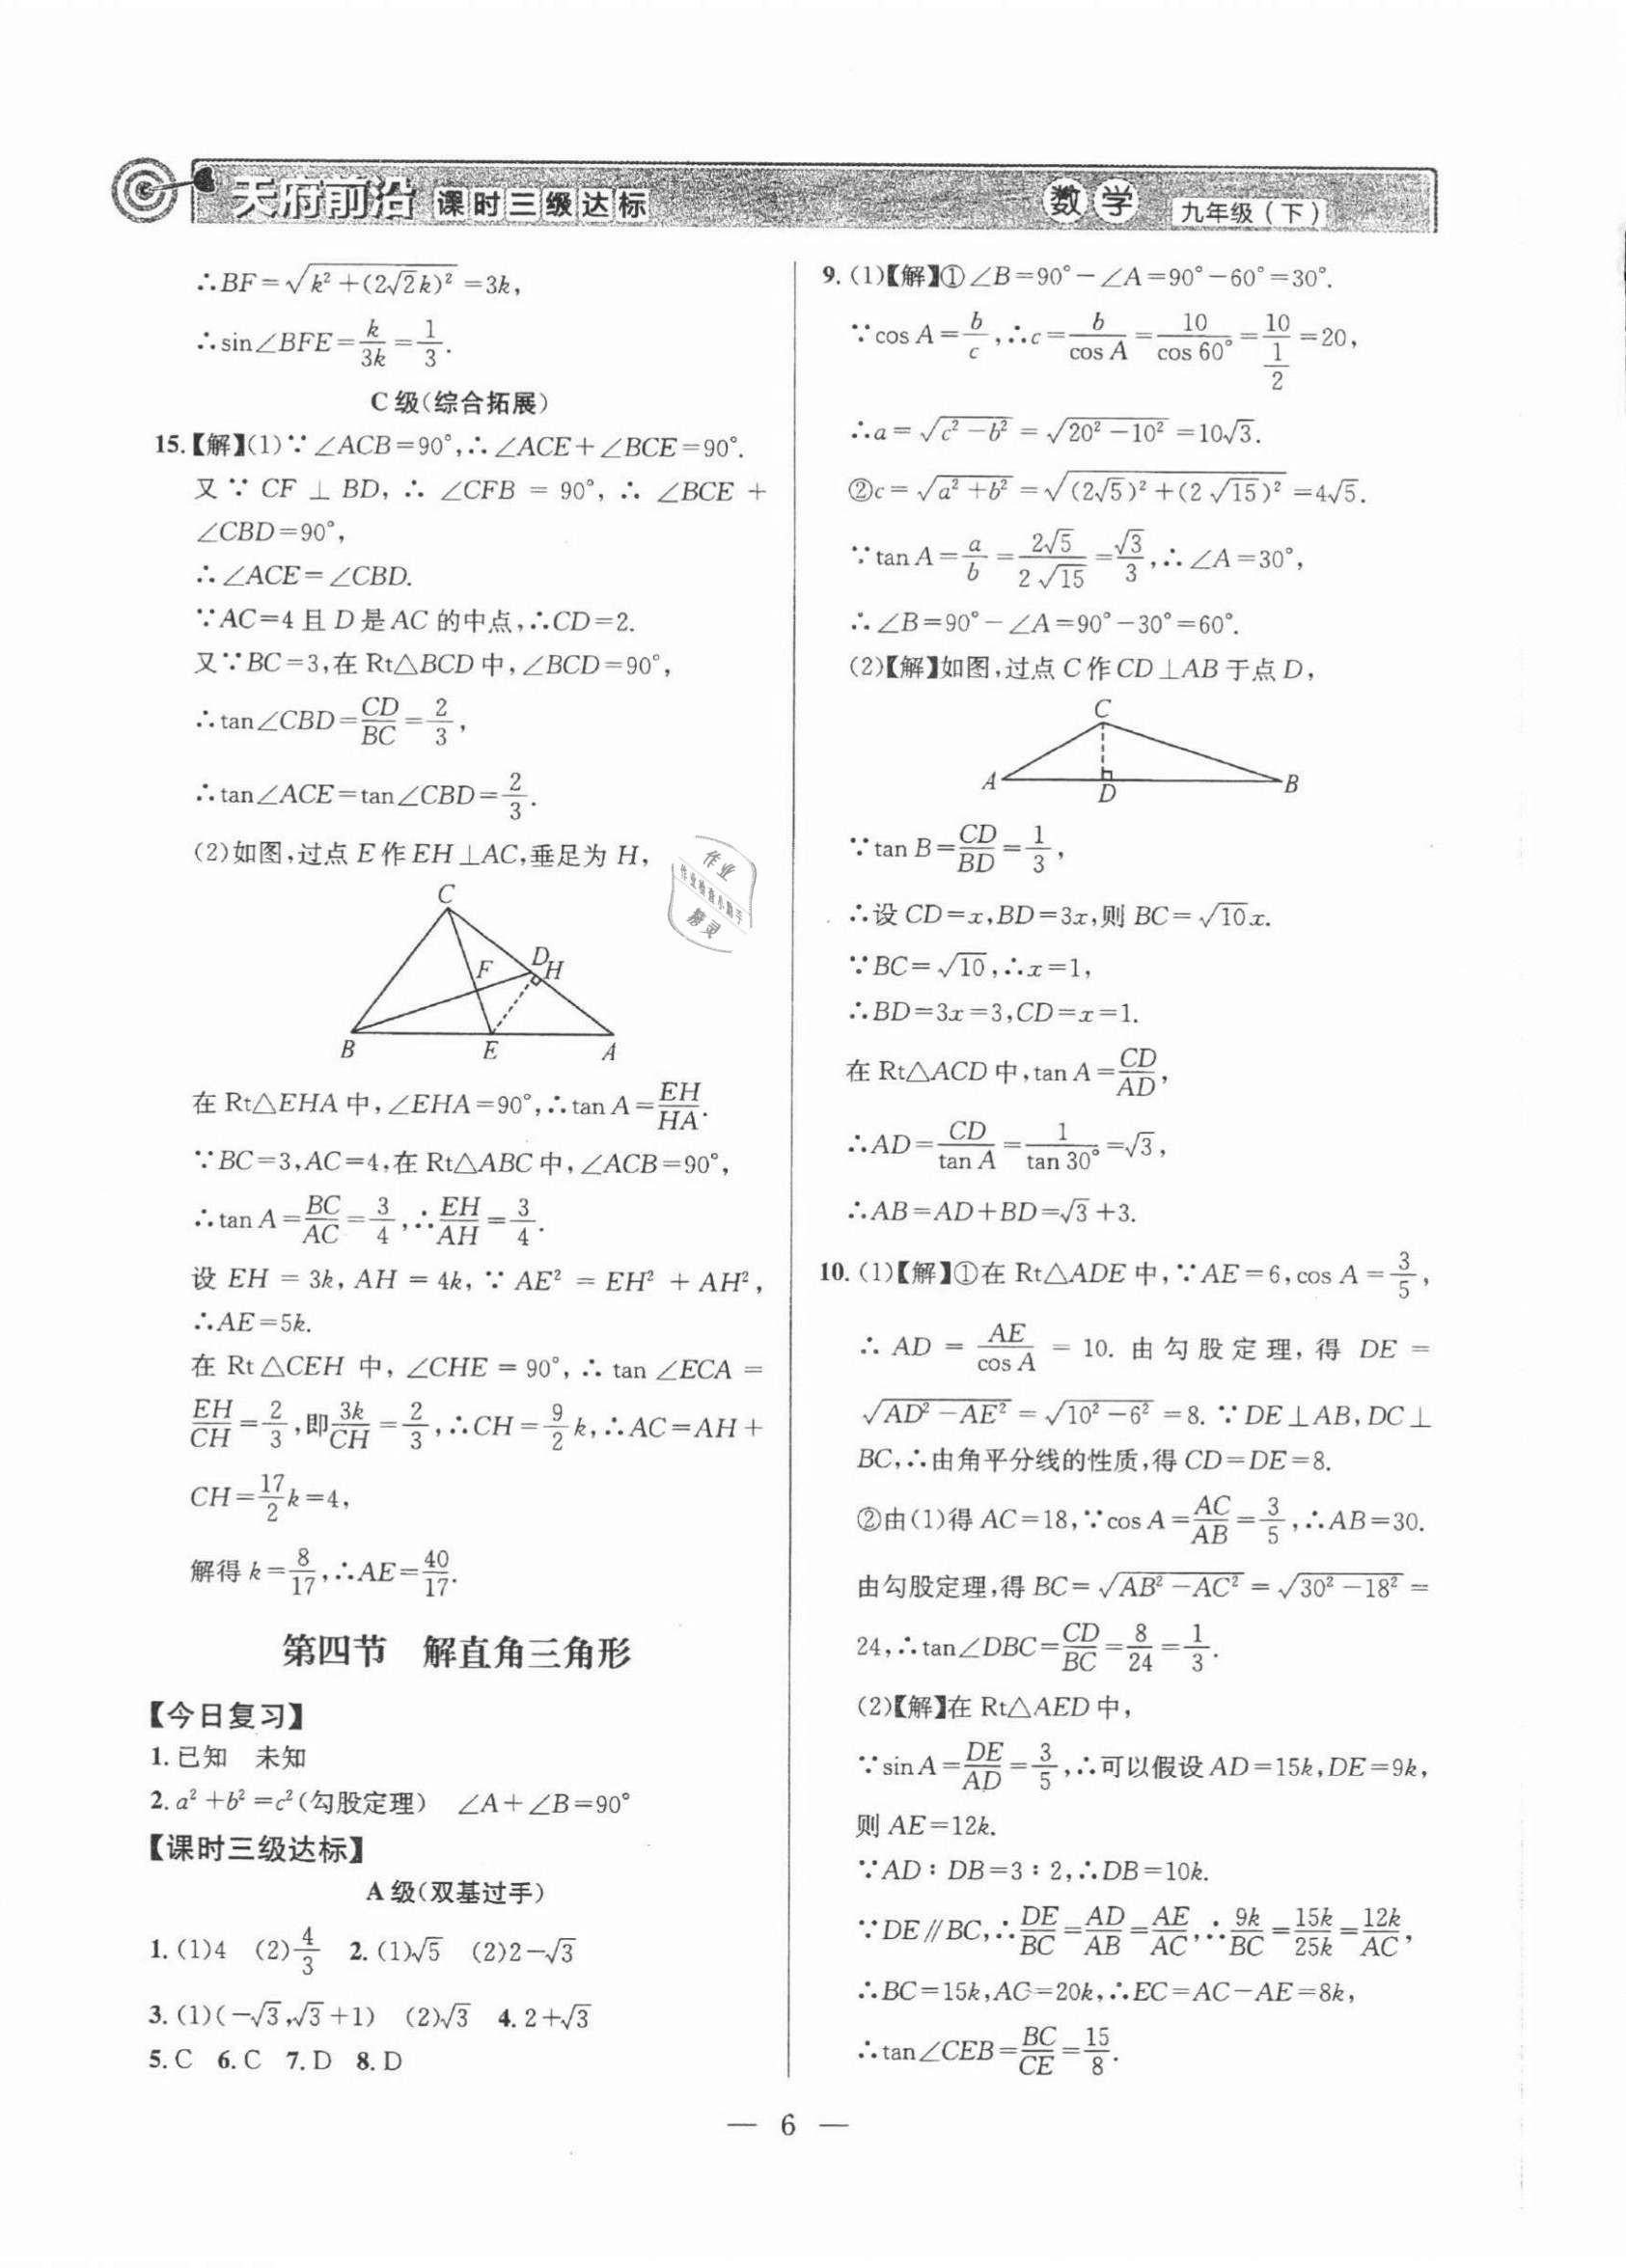 天府前沿 课时三级达标 数学 九年级(下)
∴BF=√(k²+(2√2k)²)=3k,
∴sin∠BFE=k/3k=1/3.
C级(综合拓展)
15.【解】(1)∵∠ACB=90°,∴∠ACE+∠BCE=90°.
又∵CF⊥BD,∴∠CFB=90°,∴∠BCE+
∠CBD=90°,
∴∠ACE=∠CBD.
∵AC=4且D是AC的中点,∴CD=2.
又∵BC=3,在Rt△BCD中,∠BCD=90°,
∴tan∠CBD=CD/BC=2/3,
∴tan∠ACE=tan∠CBD=2/3.
(2)如图,过点E作EH⊥AC,垂足为H,
C
D
F H
B E A
在Rt△EHA中,∠EHA=90°,∴tan A=EH/HA.
∵BC=3,AC=4,在Rt△ABC中,∠ACB=90°,
∴tan A=BC/AC=3/4,∴EH/AH=3/4.
设EH=3k,AH=4k,∵AE²=EH²+AH²,
∴AE=5k.
在Rt△CEH中,∠CHE=90°,∴tan∠ECA=
EH/CH=2/3,即3k/CH=2/3,∴CH=9/2k,∴AC=AH+
CH=17/2k=4,
解得k=8/17,∴AE=40/17.
第四节 解直角三角形
【今日复习】
1.已知 未知
2.a²+b²=c²(勾股定理) ∠A+∠B=90°
【课时三级达标】
A级(双基过手)
1.(1)4 (2)4/3 2.(1)√5 (2)2-√3
3.(1)(-√3,√3+1) (2)√3 4.2+√3
5.C 6.C 7.D 8.D
作业
作业检查小助手
精灵
9.(1)【解】①∠B=90°-∠A=90°-60°=30°.
∵cos A=b/c,∴c=b/cos A=10/cos 60°=10/(1/2)=20,
∴a=√(c²-b²)=√(20²-10²)=10√3.
②c=√(a²+b²)=√((2√5)²+(2√15)²)=4√5.
∵tan A=a/b=2√5/2√15=√3/3,∴∠A=30°,
∴∠B=90°-∠A=90°-30°=60°.
(2)【解】如图,过点C作CD⊥AB于点D,
C
A D B
∵tan B=CD/BD=1/3,
∴设CD=x,BD=3x,则BC=√10x.
∵BC=√10,∴x=1,
∴BD=3x=3,CD=x=1.
在Rt△ACD中,tan A=CD/AD,
∴AD=CD/tan A=1/tan 30°=√3,
∴AB=AD+BD=√3+3.
10.(1)【解】①在Rt△ADE中,∵AE=6,cos A=3/5,
∴AD=AE/cos A=10.由勾股定理,得DE=
√(AD²-AE²)=√(10²-6²)=8.∵DE⊥AB,DC⊥
BC,∴由角平分线的性质,得CD=DE=8.
②由(1)得AC=18,∵cos A=AC/AB=3/5,∴AB=30.
由勾股定理,得BC=√(AB²-AC²)=√(30²-18²)=
24,∴tan∠DBC=CD/BC=8/24=1/3.
(2)【解】在Rt△AED中,
∵sin A=DE/AD=3/5,∴可以假设AD=15k,DE=9k,
则AE=12k.
∵AD∶DB=3∶2,∴DB=10k.
∵DE∥BC,∴DE/BC=AD/AB=AE/AC,∴9k/BC=15k/25k=12k/AC,
∴BC=15k,AC=20k,∴EC=AC-AE=8k,
∴tan∠CEB=BC/CE=15/8.
— 6 —